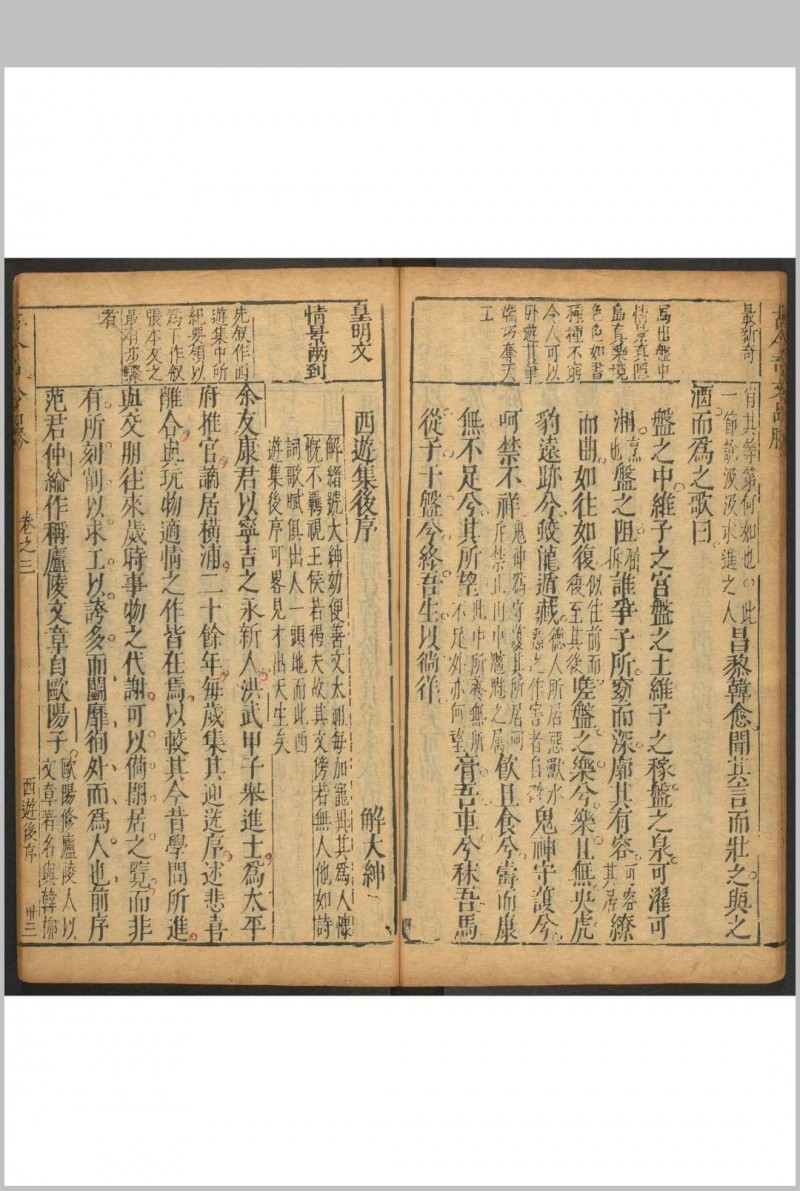 最新奇
肖其等第何如也此
一節說汲汲求進之人
昌黎韓愈聞其言而壯之與之
酒而為之歌曰
寫出盤中
情景真隱
島真樂境
色色如畫
種種不窮
今人可以
臥遊其筆
端巧奪天
工
盤之中維子之宮盤之土維子之稼盤之泉可濯可
湘烹也盤之阻誰爭子所窈而深廓其有容可容其居繚
而曲如往如復似往前而復至其後嗟盤之樂兮樂且無央虎
豹遠跡兮蛟龍遁藏德人所居惡獸水怪之作害者自避鬼神守護兮
呵禁不祥鬼神為守護其所居呵斥禁止山中魑魅之屬飲且食兮壽而康
無不足兮其所望此中所養無所不足如亦何望膏吾車兮秣吾馬
從子于盤兮終吾生以徜徉
皇明文
情景兩到
西遊集後序
解大紳
解縉號大紳幼便善文太祖每加寵異其為人慷
慨不羈視王侯若褐夫故其文傍若無人他如詩
詞歌賦俱出人一頭地而此西
遊集後序可畧見才出天生矣
先叙作西
遊集中所
紀要領以
為下作叙
張本友之
最有步驟
者
余友康君以寧吉之永新人洪武甲子舉進士為太平
府推官謫居橫浦二十餘年每歲集其迎送序述悲喜
離合與玩物適情之作皆在焉以較其今昔學問所進
與交朋往來歲時事物之代謝可以備閒居之覽而非
有所刻劑以求工以誇多而鬬靡徇外而為人也前序
范君仲綸作稱廬陵文章自歐陽子歐陽修廬陵人以文章著名與韓栁
卷之三
西遊後序
卅三